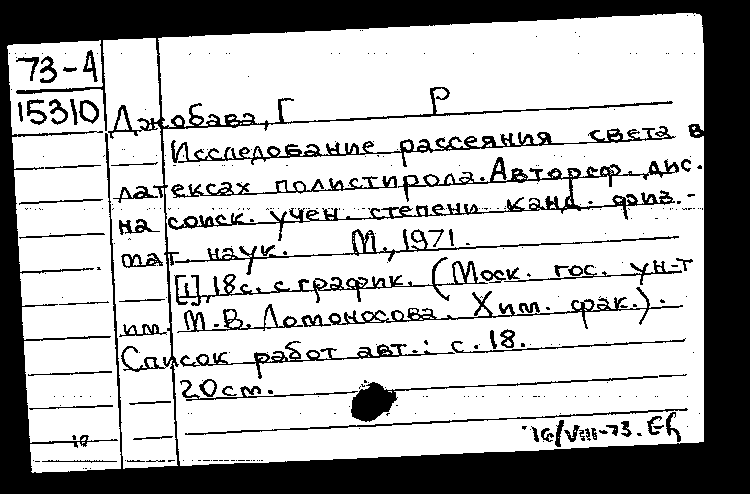 73-4
15310
Джобава, Г Р
Исследование рассеяния света в
латексах полистирола. Автореф. дис.
на соиск. учен. степени канд. физ.-
мат. наук. М., 1971.
[1], 18 с. с график. (Моск. гос. ун-т
им. М.В. Ломоносова. Хим. фак.).
Список работ авт.: с. 18.
20 см.
10
16/VIII-73.